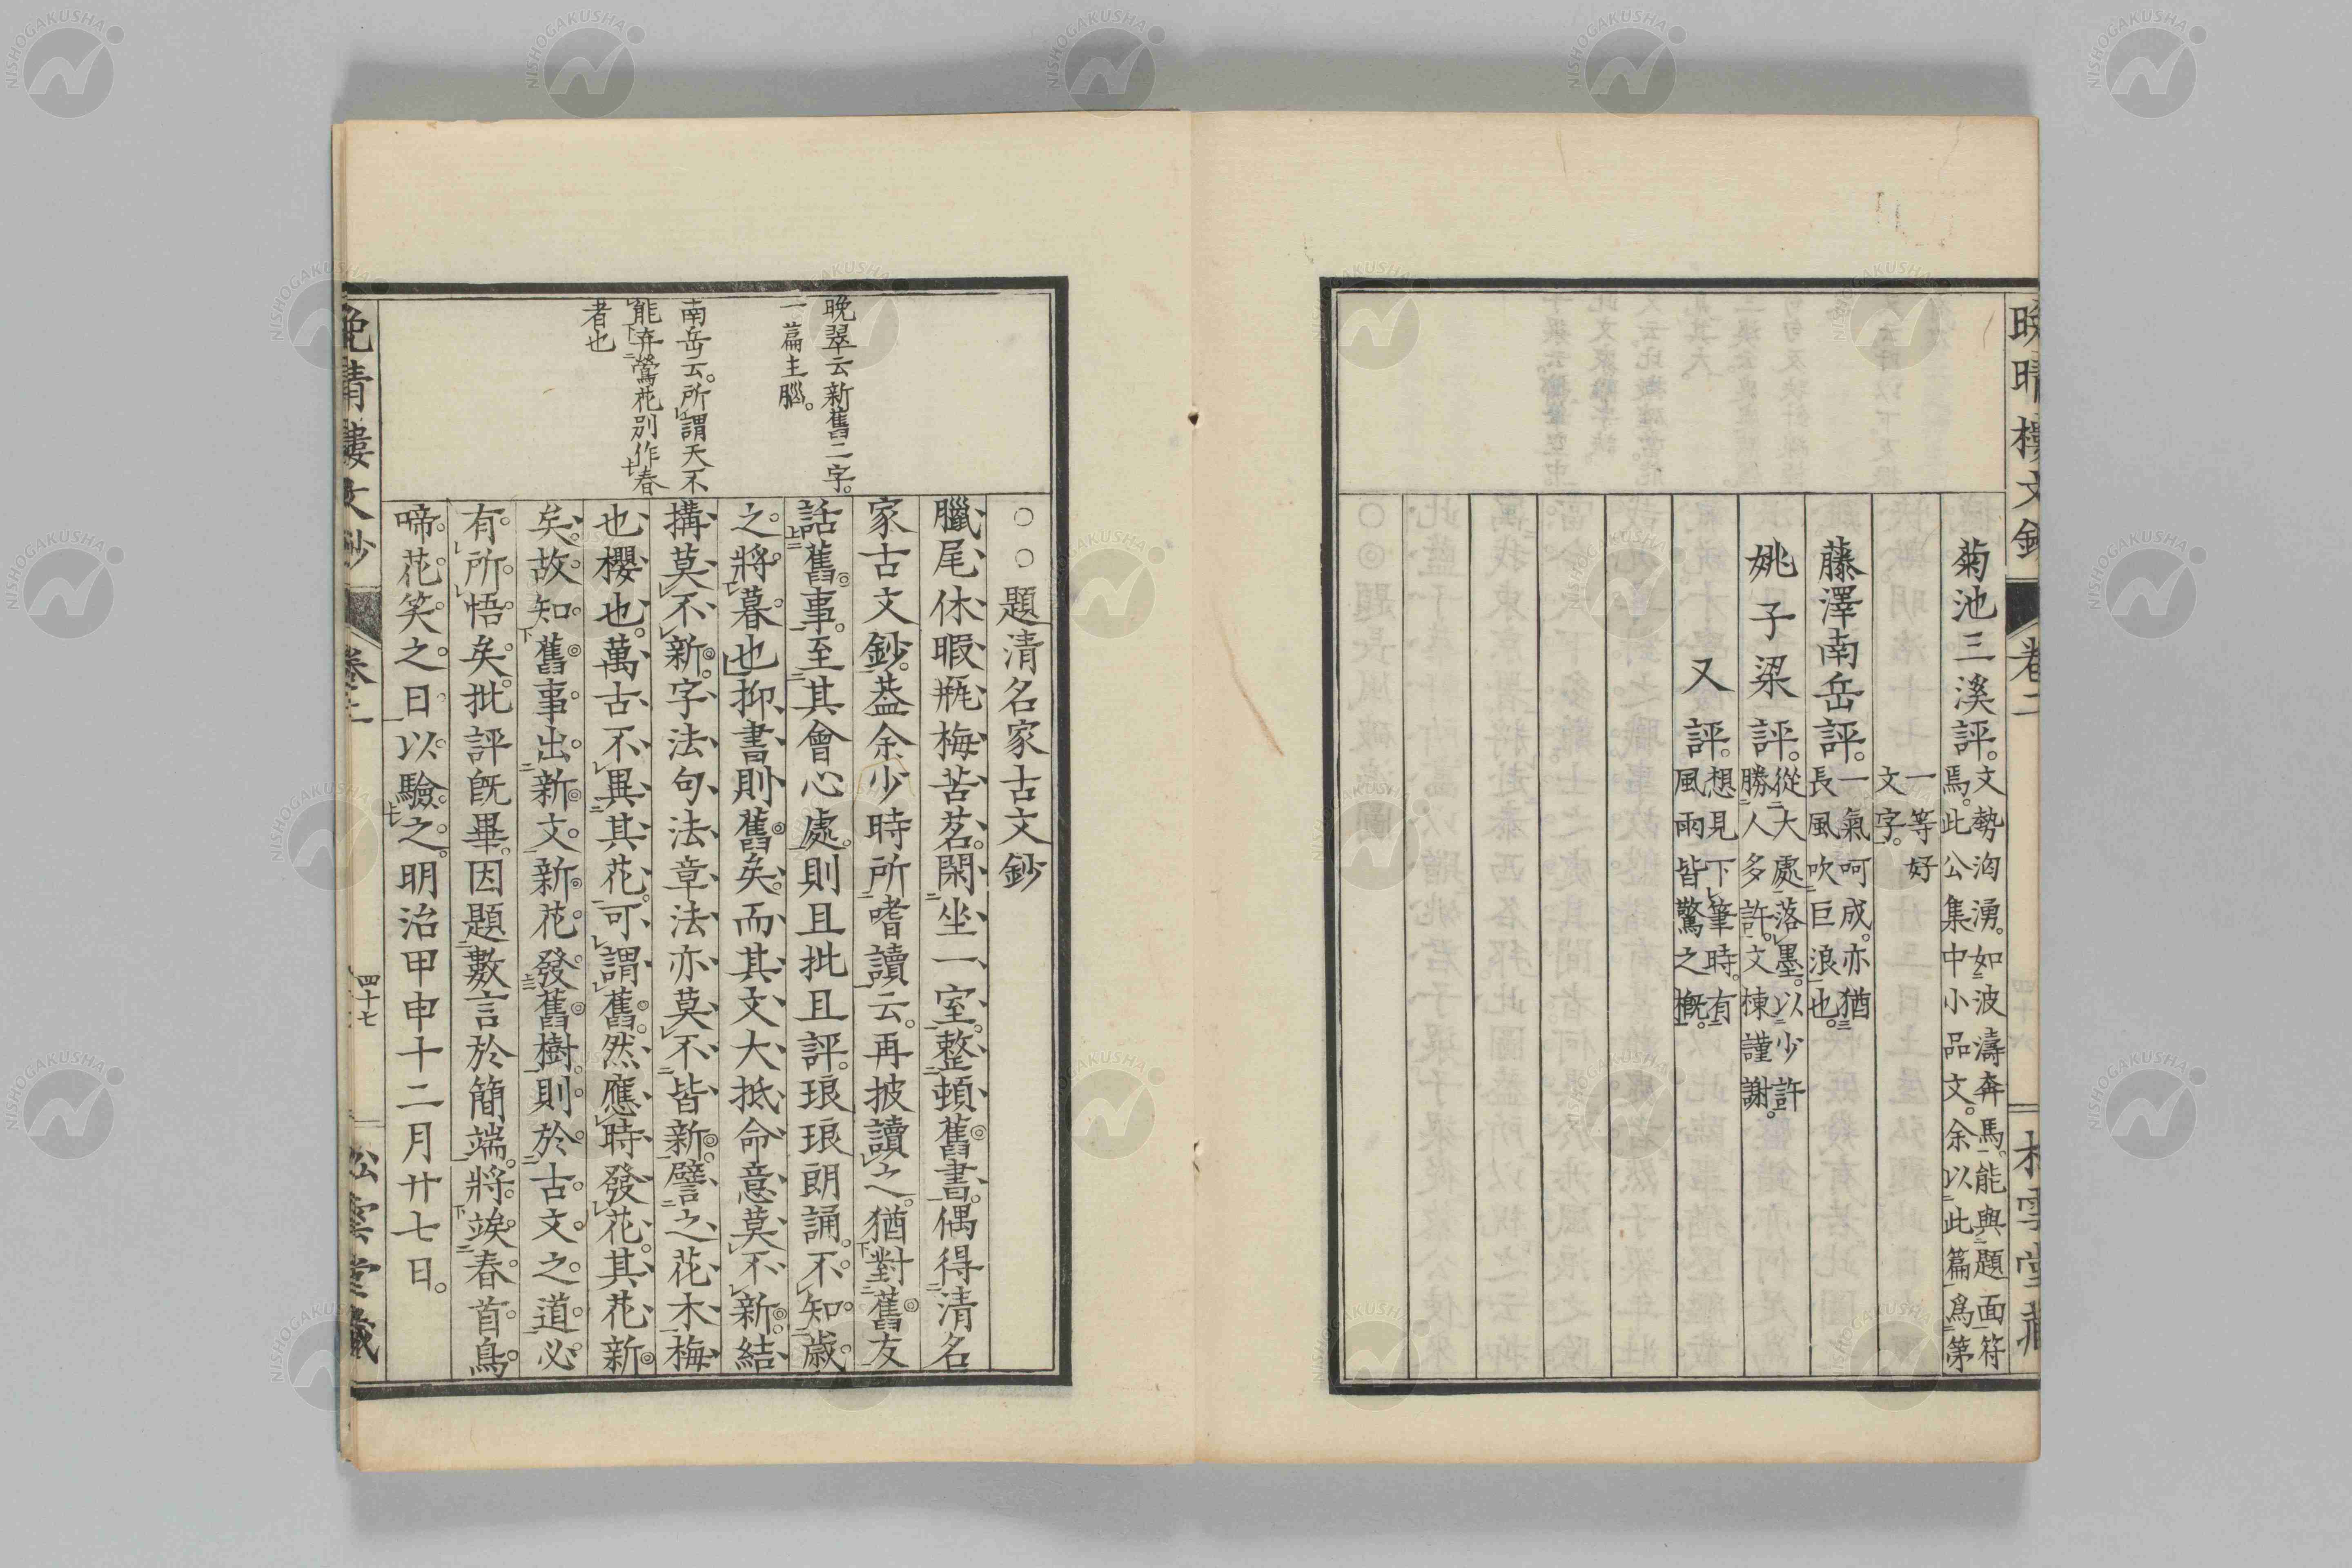 晚晴樓文鈔 卷二
菊池三溪評。文勢洶湧。如波濤奔馬。能與題面符
焉。此公集中小品文。余以此篇爲第
一等好
文字。
藤澤南岳評。一氣呵成。亦猶
長風吹巨浪也。
姚子梁評。從大處落墨。以少許
勝人多許。文棟謹謝。
又評。想見下筆時。有
風雨皆驚之概。
晚翠云新舊二字。
一篇主腦。
南岳云。所謂天不
能弃鶯花別作春
者也
○○題清名家古文鈔
臘尾休暇瓶梅苦茗。閑坐一室。整頓舊書。偶得清名
家古文鈔。葢余少時所嗜讀云。再披讀之。猶對舊友
話舊事。至其會心處。則且批且評。琅琅朗誦。不知歲
之將暮也抑書則舊矣。而其文大抵命意莫不新。結
搆莫不新。字法句法章法亦莫不皆新。譬之花木梅
也櫻也。萬古不異其花。可謂舊。然應時發花。其花新
矣。故知舊事出新文。新花發舊樹。則於古文之道。必
有所悟矣。批評既畢。因題數言於簡端。將竢春首鳥
啼花笑之日。以驗之。明治甲申十二月廿七日。
晚晴樓文鈔 卷二 四十七 松雲堂藏